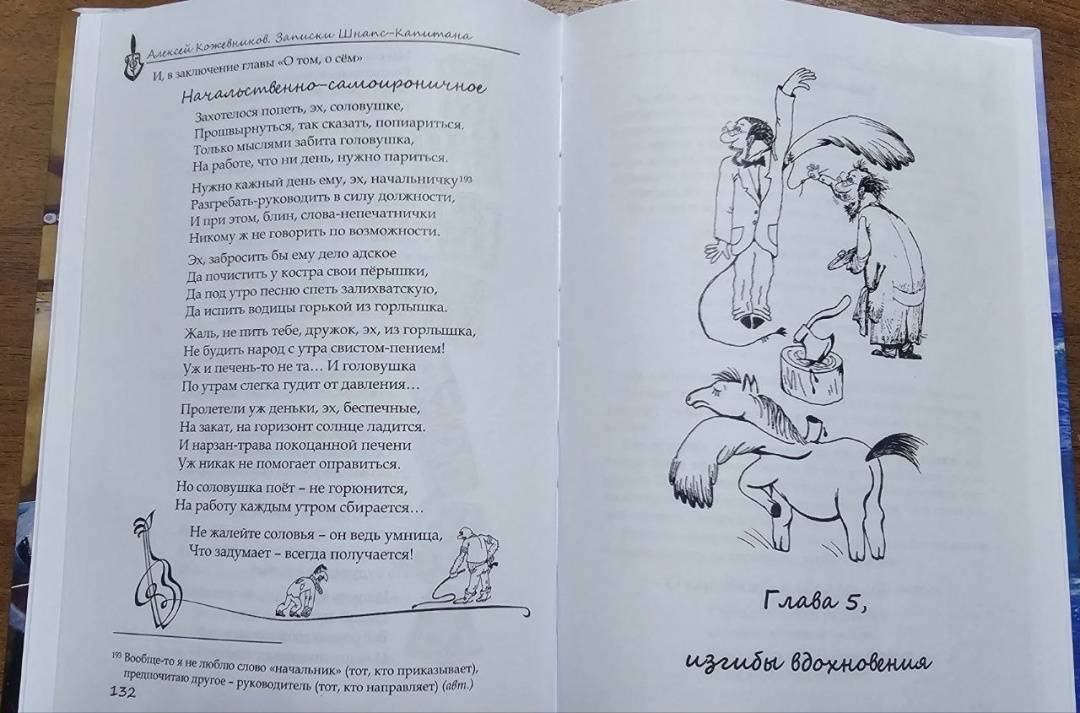 Алексей Кожевников. Записки Шнапс-Капитана
И, в заключение главы «О том, о сём»
Начальственно-самоироничное
Захотелося попеть, эх, соловушке,
Прошвырнуться, так сказать, попиариться.
Только мыслями забита головушка,
На работе, что ни день, нужно париться.
Нужно кажный день ему, эх, начальничку¹⁹³
Разгребать-руководить в силу должности,
И при этом, блин, слова-непечатнички
Никому ж не говорить по возможности.
Эх, забросить бы ему дело адское
Да почистить у костра свои пёрышки,
Да под утро песню спеть залихватскую,
Да испить водицы горькой из горлышка.
Жаль, не пить тебе, дружок, эх, из горлышка,
Не будить народ с утра свистом-пением!
Уж и печень-то не та... И головушка
По утрам слегка гудит от давления...
Пролетели уж деньки, эх, беспечные,
На закат, на горизонт солнце ладится.
И нарзан-трава покоцанной печени
Уж никак не помогает оправиться.
Но соловушка поёт – не горюнится,
На работу каждым утром сбирается...
Не жалейте соловья – он ведь умница,
Что задумает – всегда получается!
¹⁹³ Вообще-то я не люблю слово «начальник» (тот, кто приказывает),
предпочитаю другое – руководитель (тот, кто направляет) (авт.)
132
Глава 5,
изгибы вдохновения